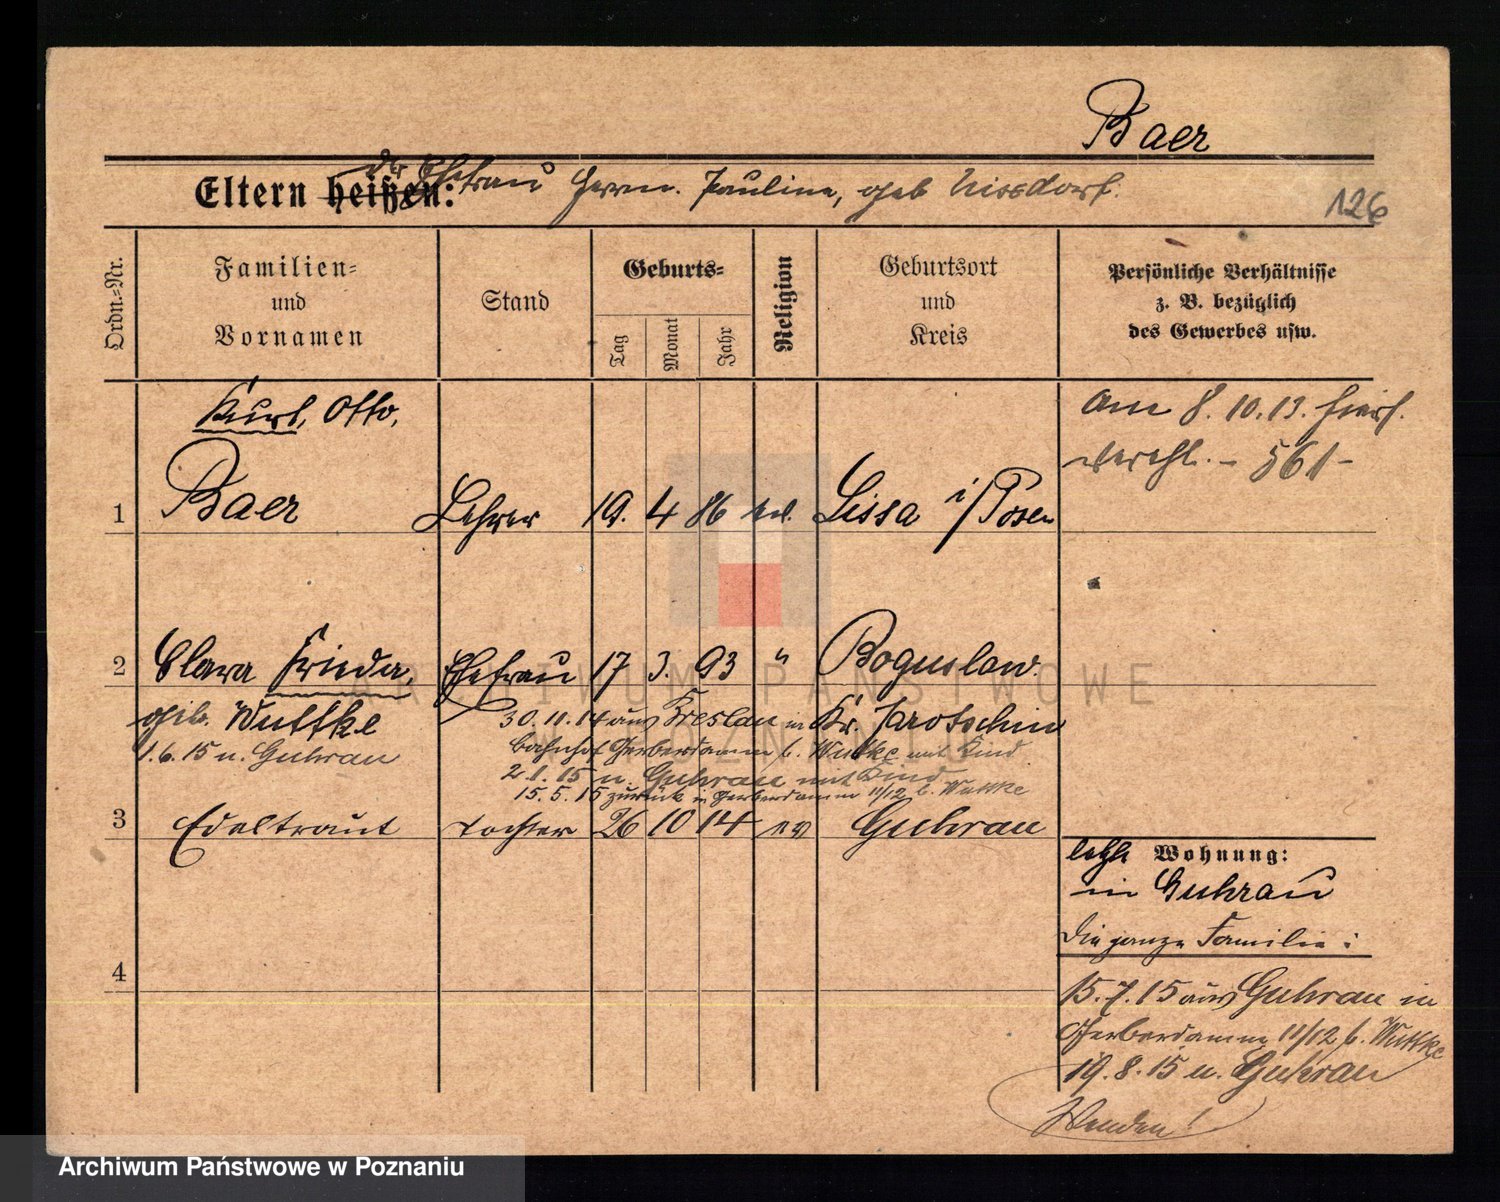 Baer
Eltern heißen: der Ehefrau Herm. Pauline, geb Nissdorf.
126
Ordn.-Nr.
Familien-
und
Vornamen
Stand
Geburts-
Tag
Monat
Jahr
Religion
Geburtsort
und
Kreis
Persönliche Verhältnisse
z. B. bezüglich
des Gewerbes usw.
Kurt, Otto,
1 Baer Lehrer 19. 4 86 ev. Lissa i/Posen
am 8. 10. 13. hier
verehl. - 561 -
2 Clara Frieda, Ehefrau 17 3. 93 " Boguslaw.
geb. Wuttke
Kr. Jarotschin
1.6.15 n. Guhrau
30.11.14 aus Breslau in
Bahnhof Gerberdamm b. Wuttke mit Kind
2.1.15 n. Guhrau mit Kind
15.5.15 zurück in Gerberdamm 11/12 b. Wuttke
3 Edeltraut Tochter 26 10 14 ev Guhrau
letzte Wohnung:
in Guhrau
Die ganze Familie:
4
15.7.15 aus Guhrau in
Gerberdamm 11/12 b. Wuttke
19.8.15 n. Guhrau
Wenden!
ARCHIWUM PAŃSTWOWE
W POZNANIU
Archiwum Państwowe w Poznaniu